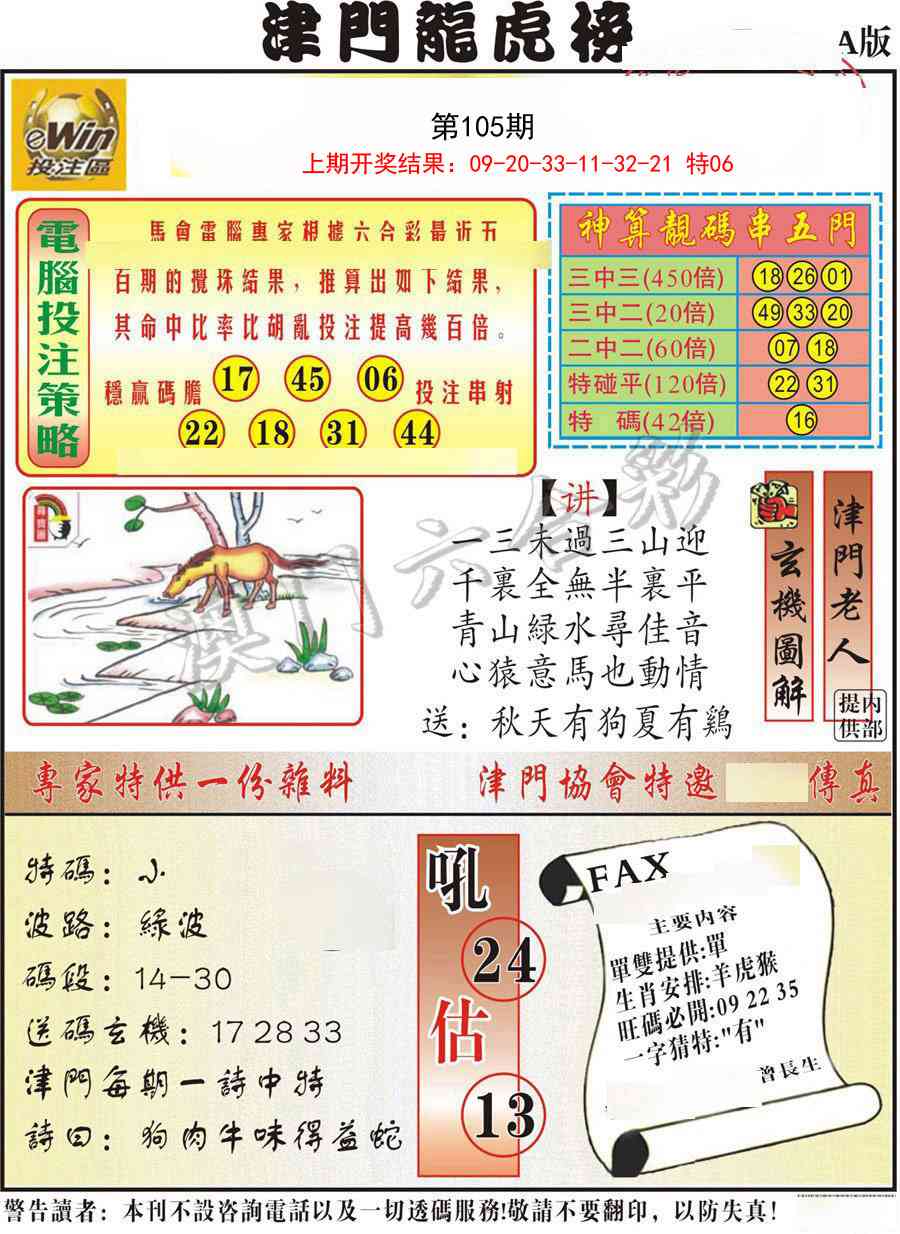 津門龍虎榜
A版
eWin
投注區
第105期
上期开奖结果：09-20-33-11-32-21 特06
電腦投注策略
馬會電腦專家根據六合彩最近五
百期的攪珠結果，推算出如下結果，
其命中比率比胡亂投注提高幾百倍。
穩贏碼膽 17 45 06 投注串射
22 18 31 44
神算靚碼串五門
三中三(450倍) 18 26 01
三中二(20倍) 49 33 20
二中二(60倍) 07 18
特碰平(120倍) 22 31
特 碼(42倍) 16
【讲】
一三未過三山迎
千裏全無半裏平
青山緑水尋佳音
心猿意馬也動情
送：秋天有狗夏有鷄
玄機圖解
津門老人
内部提供
澳门六合彩
專家特供一份雜料
津門協會特邀
傳真
特碼：小
波路：緑波
碼段：14-30
送碼玄機：17 28 33
津門每期一詩中特
詩曰：狗肉牛味得益蛇
吼
24
估
13
FAX
主要内容
單雙提供:單
生肖安排:羊虎猴
旺碼必開:09 22 35
一字猜特:"有"
曾長生
警告讀者：本刊不設咨詢電話以及一切透碼服務!敬請不要翻印，以防失真!